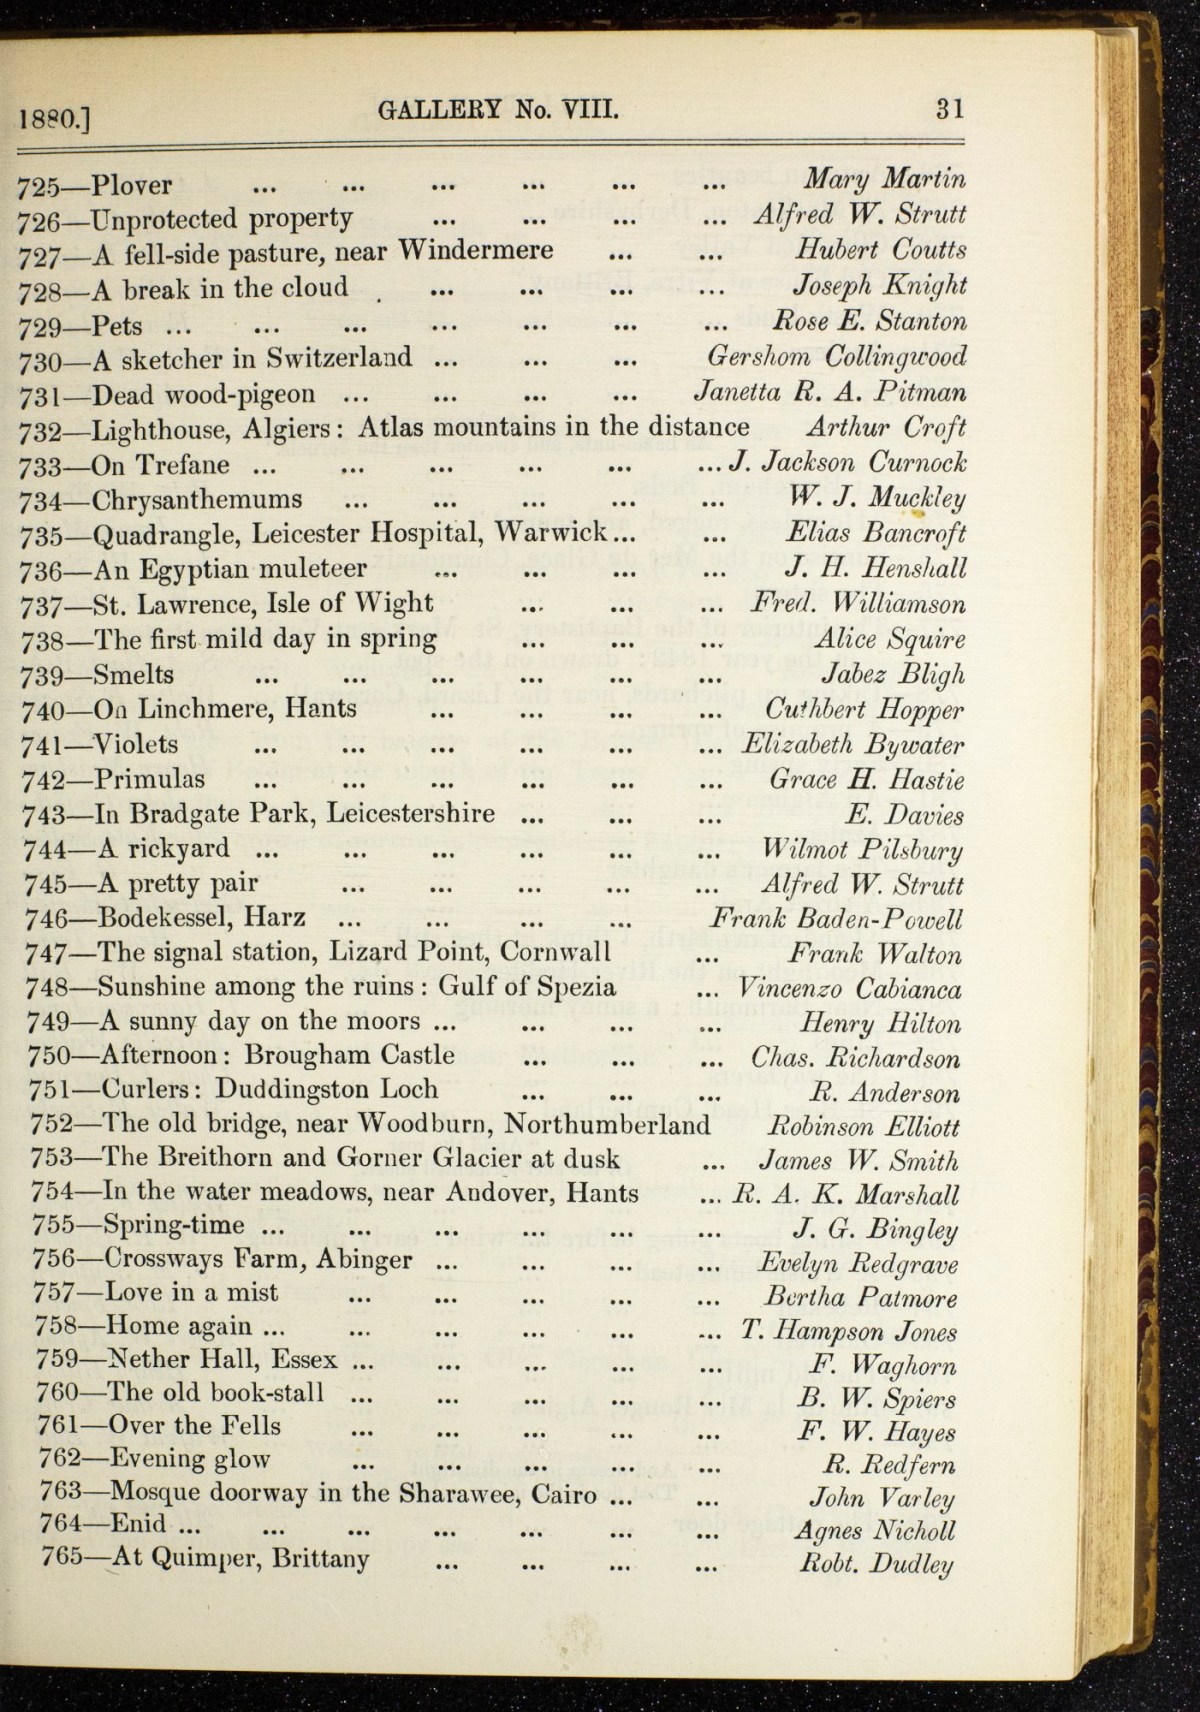 1880.] GALLERY No. VIII. 31
725—Plover ... ... ... ... ... ... Mary Martin
726—Unprotected property ... ... ... ... Alfred W. Strutt
727—A fell-side pasture, near Windermere ... ... Hubert Coutts
728—A break in the cloud ... ... ... ... Joseph Knight
729—Pets ... ... ... ... ... ... ... Rose E. Stanton
730—A sketcher in Switzerland ... ... ... Gershom Collingwood
731—Dead wood-pigeon ... ... ... ... Janetta R. A. Pitman
732—Lighthouse, Algiers: Atlas mountains in the distance Arthur Croft
733—On Trefane ... ... ... ... ... ... J. Jackson Curnock
734—Chrysanthemums ... ... ... ... ... W. J. Muckley
735—Quadrangle, Leicester Hospital, Warwick... ... Elias Bancroft
736—An Egyptian muleteer ... ... ... ... J. H. Henshall
737—St. Lawrence, Isle of Wight ... ... ... Fred. Williamson
738—The first mild day in spring ... ... ... Alice Squire
739—Smelts ... ... ... ... ... ... Jabez Bligh
740—On Linchmere, Hants ... ... ... ... Cuthbert Hopper
741—Violets ... ... ... ... ... ... Elizabeth Bywater
742—Primulas ... ... ... ... ... ... Grace H. Hastie
743—In Bradgate Park, Leicestershire ... ... ... E. Davies
744—A rickyard ... ... ... ... ... ... Wilmot Pilsbury
745—A pretty pair ... ... ... ... ... Alfred W. Strutt
746—Bodekessel, Harz ... ... ... ... Frank Baden-Powell
747—The signal station, Lizard Point, Cornwall ... Frank Walton
748—Sunshine among the ruins: Gulf of Spezia ... Vincenzo Cabianca
749—A sunny day on the moors ... ... ... ... Henry Hilton
750—Afternoon: Brougham Castle ... ... ... Chas. Richardson
751—Curlers: Duddingston Loch ... ... ... R. Anderson
752—The old bridge, near Woodburn, Northumberland Robinson Elliott
753—The Breithorn and Gorner Glacier at dusk ... James W. Smith
754—In the water meadows, near Andover, Hants ... R. A. K. Marshall
755—Spring-time ... ... ... ... ... ... J. G. Bingley
756—Crossways Farm, Abinger ... ... ... ... Evelyn Redgrave
757—Love in a mist ... ... ... ... ... Bertha Patmore
758—Home again ... ... ... ... ... ... T. Hampson Jones
759—Nether Hall, Essex ... ... ... ... ... F. Waghorn
760—The old book-stall ... ... ... ... ... B. W. Spiers
761—Over the Fells ... ... ... ... ... F. W. Hayes
762—Evening glow ... ... ... ... ... R. Redfern
763—Mosque doorway in the Sharawee, Cairo ... ... John Varley
764—Enid ... ... ... ... ... ... ... Agnes Nicholl
765—At Quimper, Brittany ... ... ... ... Robt. Dudley